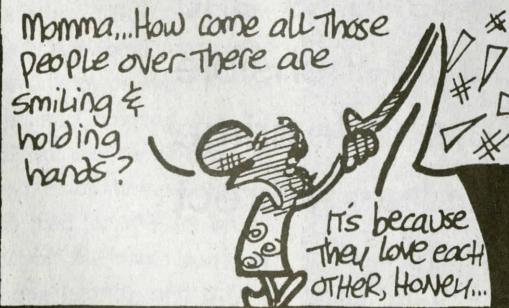 Momma...How come all those
people over there are
smiling &
holding
hands?
It's because
they love each
OTHER, HONEY...